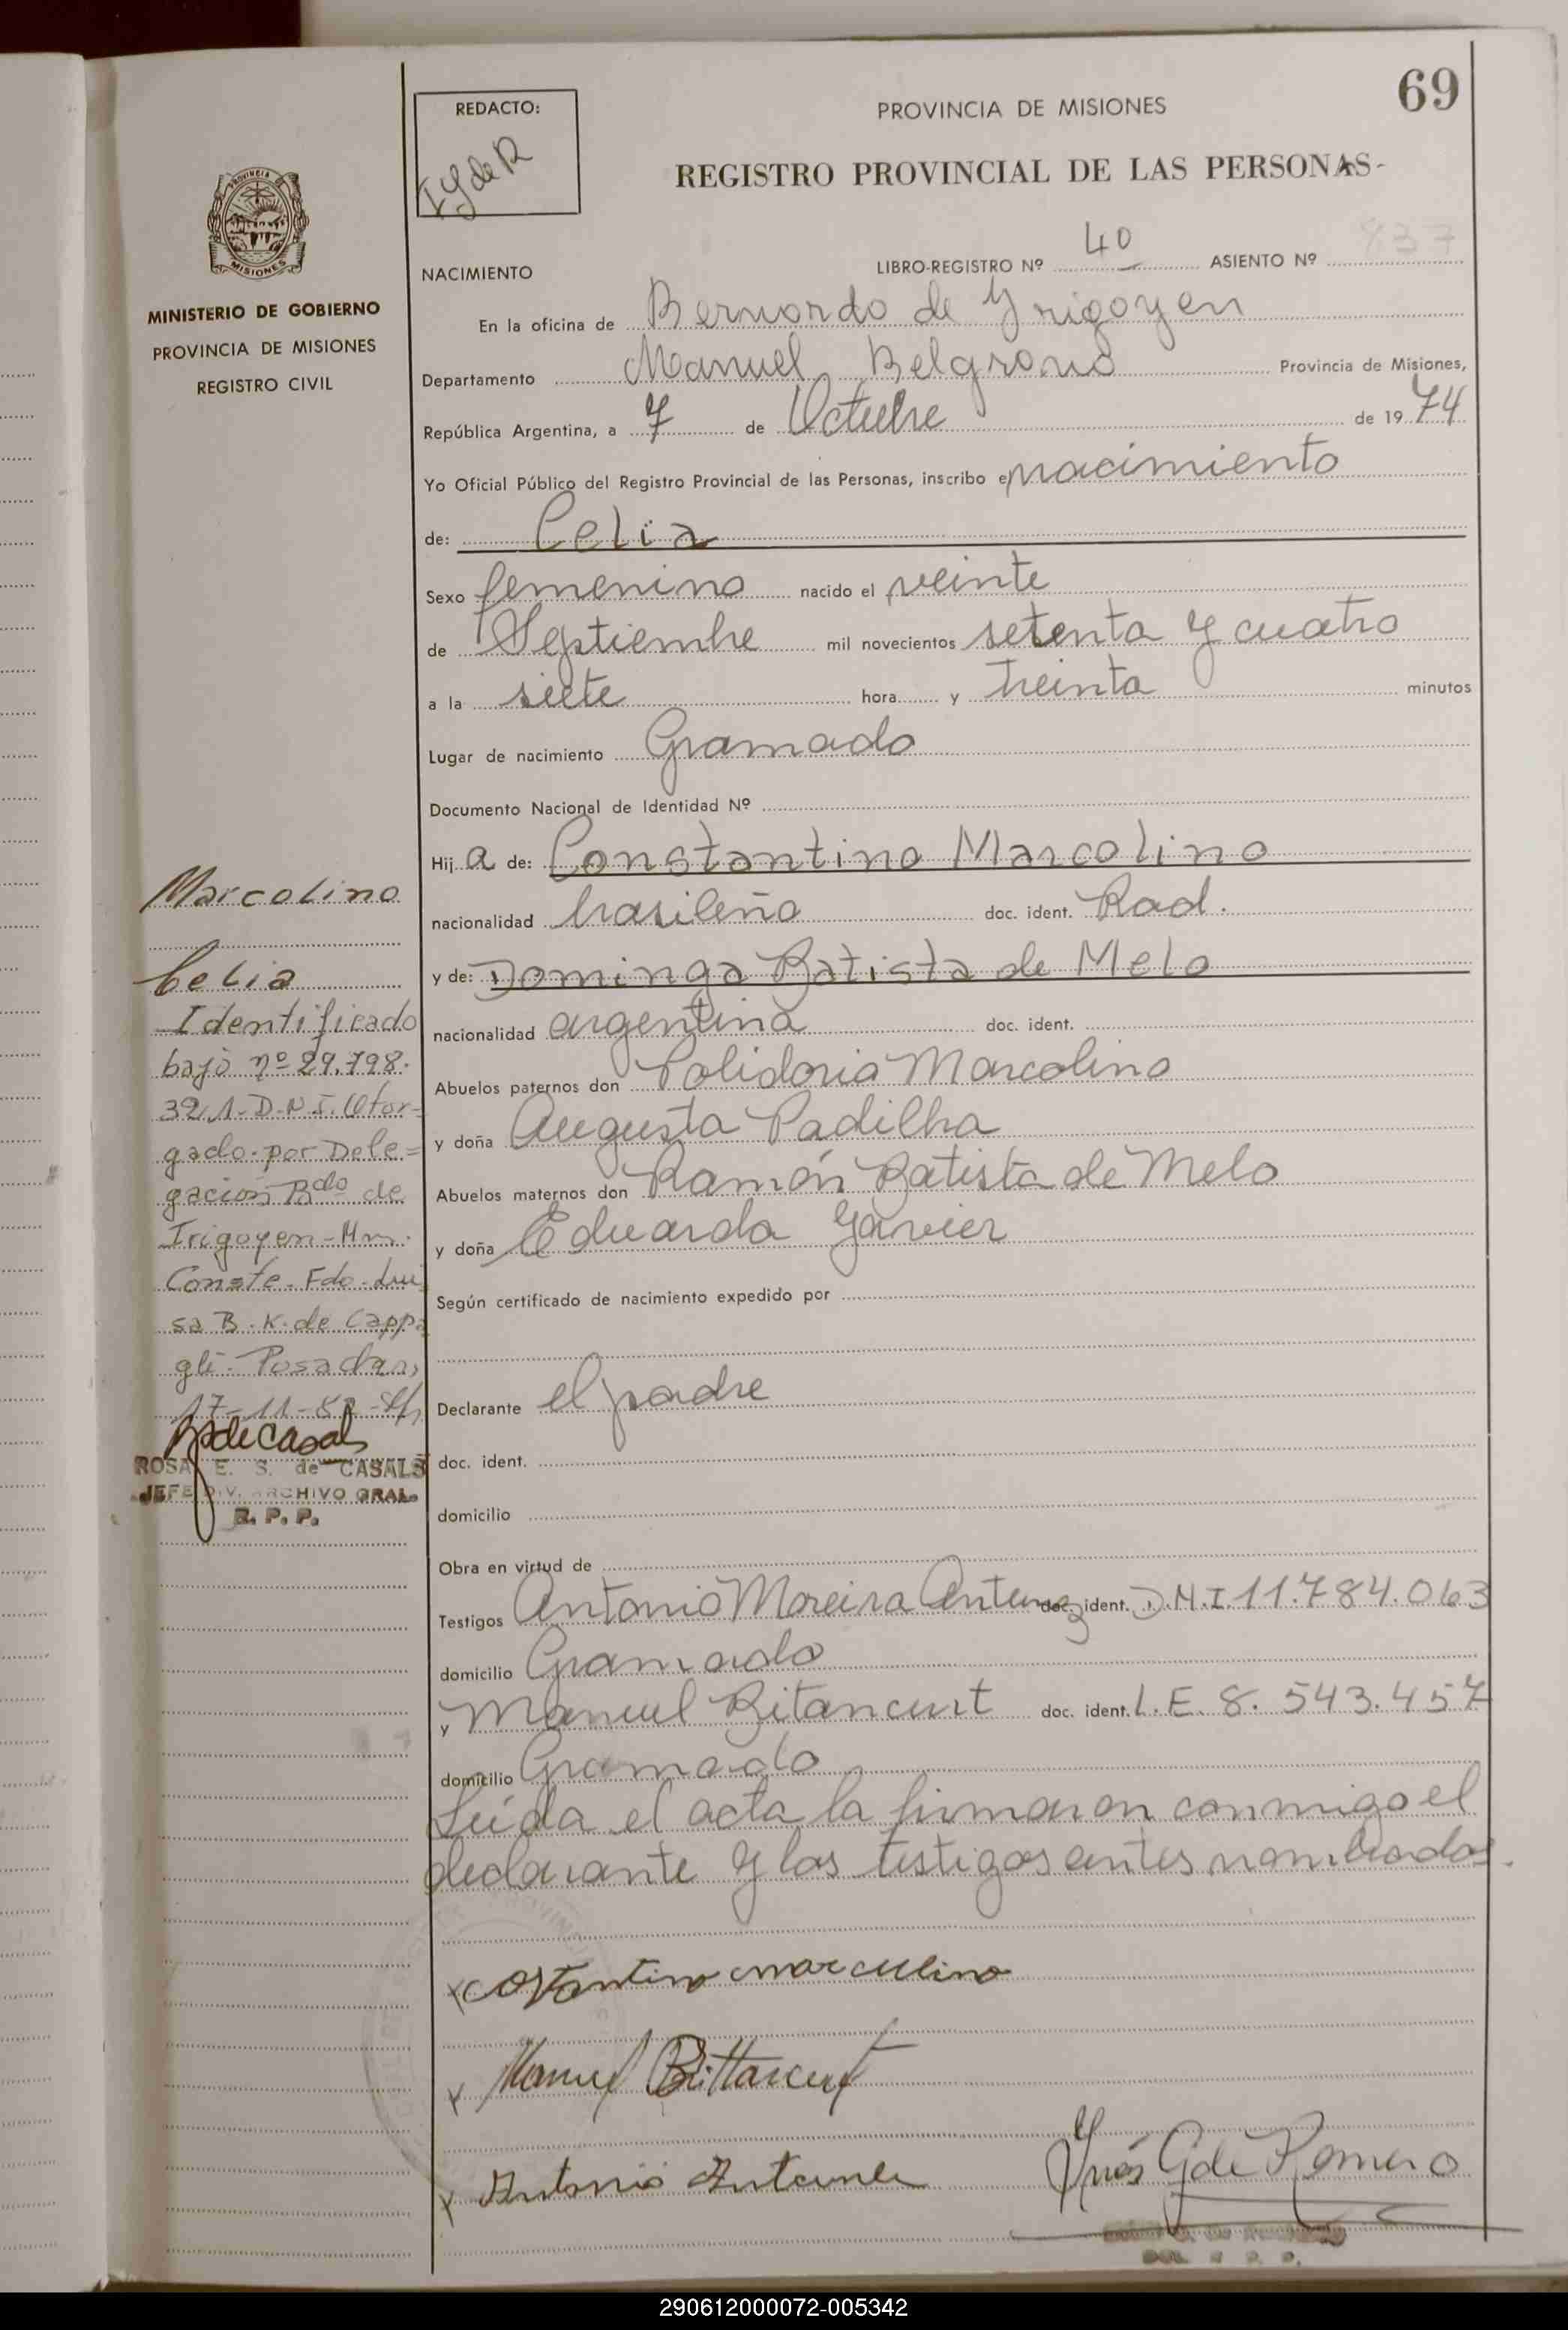 69
REDACTO:
PROVINCIA DE MISIONES
REGISTRO PROVINCIAL DE LAS PERSONAS-
PROVINCIA
MISIONES
MINISTERIO DE GOBIERNO
PROVINCIA DE MISIONES
REGISTRO CIVIL
NACIMIENTO LIBRO-REGISTRO Nº 40 ASIENTO Nº 837
En la oficina de Bernardo de Yrigoyen
Departamento Manuel Belgrano Provincia de Misiones,
República Argentina, a 7 de Octubre de 1974
Yo Oficial Público del Registro Provincial de las Personas, inscribo e nacimiento
de: Celia
Sexo femenino nacido el veinte
de Septiembre mil novecientos setenta y cuatro
a la siete hora y treinta minutos
Lugar de nacimiento Gramado
Documento Nacional de Identidad Nº
Hij a de: Constantino Marcolino
nacionalidad brasileño doc. ident. Rad.
y de: Dominga Batista de Melo
nacionalidad argentina doc. ident.
Abuelos paternos don Polidorio Marcolino
y doña Augusta Padilha
Abuelos maternos don Ramón Batista de Melo
y doña Eduarda Yavier
Según certificado de nacimiento expedido por
Declarante el padre
doc. ident.
domicilio
Obra en virtud de
Testigos Antonio Moreira Antunez doc. ident. D.N.I. 11.784.063
domicilio Gramado
y Manuel Bitancurt doc. ident. L.E. 8.543.457
domicilio Gramado
Leída el acta la firmaron conmigo el
declarante y los testigos antes nombrados.
Marcolino
Celia
Identificado
bajo nº 29.798.
321-D-N I. Otor-
gado por Dele=
gación Bdo de
Irigoyen-Mm.
Conste. Fdo. Lui
sa B. K. de Cappa
gli. Posadas,
17-11-82-
R S de Casals
ROSA E. S. de CASALS
JEFE DIV. ARCHIVO GRAL.
R. P. P.
x costantino marculino
x Manuel Bittancurt
x Antonio Antunes
Ynés G de Romero
290612000072-005342